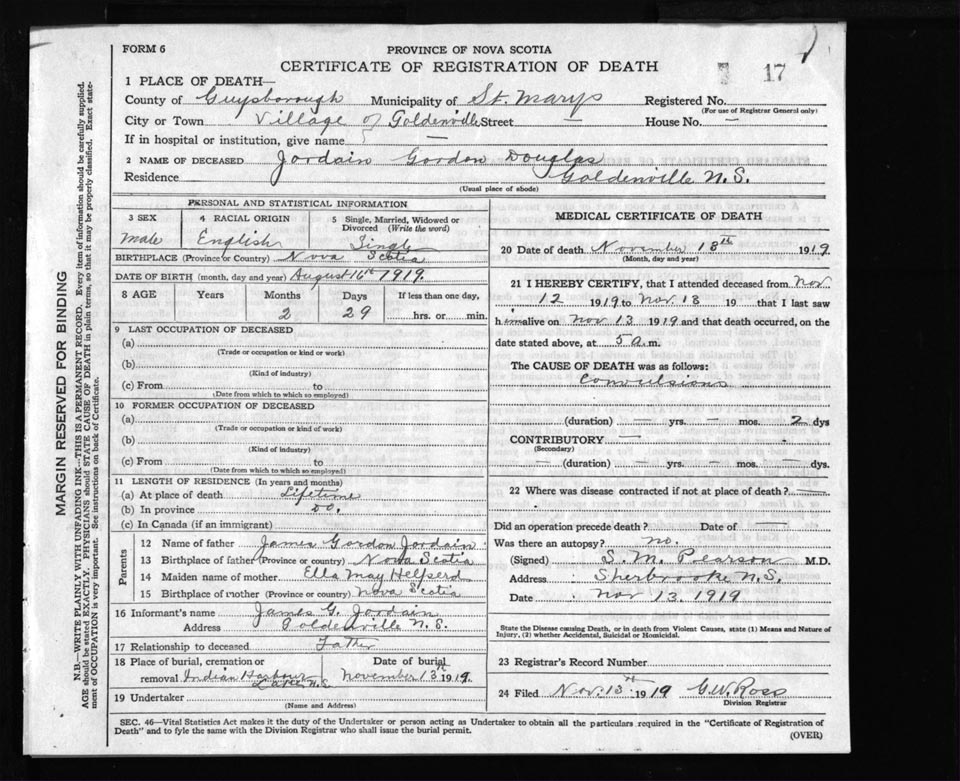 FORM 6
PROVINCE OF NOVA SCOTIA
CERTIFICATE OF REGISTRATION OF DEATH
17
1 PLACE OF DEATH—
County of Guysborough Municipality of St. Marys Registered No.
(For use of Registrar General only)
City or Town Village of Goldenville Street — House No. —
If in hospital or institution, give name —
2 NAME OF DECEASED Jordain Gordon Douglas
Residence Goldenville N.S.
(Usual place of abode)
PERSONAL AND STATISTICAL INFORMATION
3 SEX 4 RACIAL ORIGIN 5 Single, Married, Widowed or Divorced (Write the word)
Male English Single
BIRTHPLACE (Province or Country) Nova Scotia
DATE OF BIRTH (month, day and year) August 16th 1919.
8 AGE Years Months Days If less than one day,
2 29 hrs. or min.
9 LAST OCCUPATION OF DECEASED
(a)
(Trade or occupation or kind or work)
(b)
(Kind of industry)
(c) From to
(Date from which to which so employed)
10 FORMER OCCUPATION OF DECEASED
(a)
(Trade or occupation or kind of work)
(b)
(Kind of industry)
(c) From to
(Date from which to which so employed)
11 LENGTH OF RESIDENCE (In years and months)
(a) At place of death Lifetime
(b) In province Do.
(c) In Canada (if an immigrant)
Parents
12 Name of father James Gordon Jordain
13 Birthplace of father (Province or country) Nova Scotia
14 Maiden name of mother Ella May
15 Birthplace of mother (Province or country) Nova Scotia
16 Informant's name James G. Jordain
Address Goldenville N.S.
17 Relationship to deceased Father
18 Place of burial, cremation or Date of burial
removal Indian Harbour Lake N.S. November 13th 1919.
19 Undertaker
(Name and Address)
MEDICAL CERTIFICATE OF DEATH
20 Date of death November 18th 1919.
(Month, day and year)
21 I HEREBY CERTIFY, that I attended deceased from Nov.
12 1919 to Nov. 13 19 that I last saw
him alive on Nov 13 1919 and that death occurred, on the
date stated above, at 5 a.m.
The CAUSE OF DEATH was as follows:
Convulsions
(duration) — yrs. — mos. 2 dys
CONTRIBUTORY —
(Secondary)
(duration) — yrs. — mos. — dys.
22 Where was disease contracted if not at place of death? —
Did an operation precede death? Date of —
Was there an autopsy? no.
(Signed) S. M. Pearson M.D.
Address Sherbrooke N.S.
Date Nov 13 1919
State the Disease causing Death, or in death from Violent Causes, state (1) Means and Nature of
Injury, (2) whether Accidental, Suicidal or Homicidal.
23 Registrar's Record Number
24 Filed Nov. 13th 1919 G.W. Ross
Division Registrar
SEC. 46—Vital Statistics Act makes it the duty of the Undertaker or person acting as Undertaker to obtain all the particulars required in the "Certificate of Registration of
Death" and to fyle the same with the Division Registrar who shall issue the burial permit.
(OVER)
MARGIN RESERVED FOR BINDING
N.B.—WRITE PLAINLY WITH UNFADING INK—THIS IS A PERMANENT RECORD. Every item of information should be carefully supplied.
AGE should be stated EXACTLY. PHYSICIANS should STATE CAUSE OF DEATH in plain terms, so that it may be properly classified. Exact state-
ment of OCCUPATION is very important. See instructions on back of Certificate.